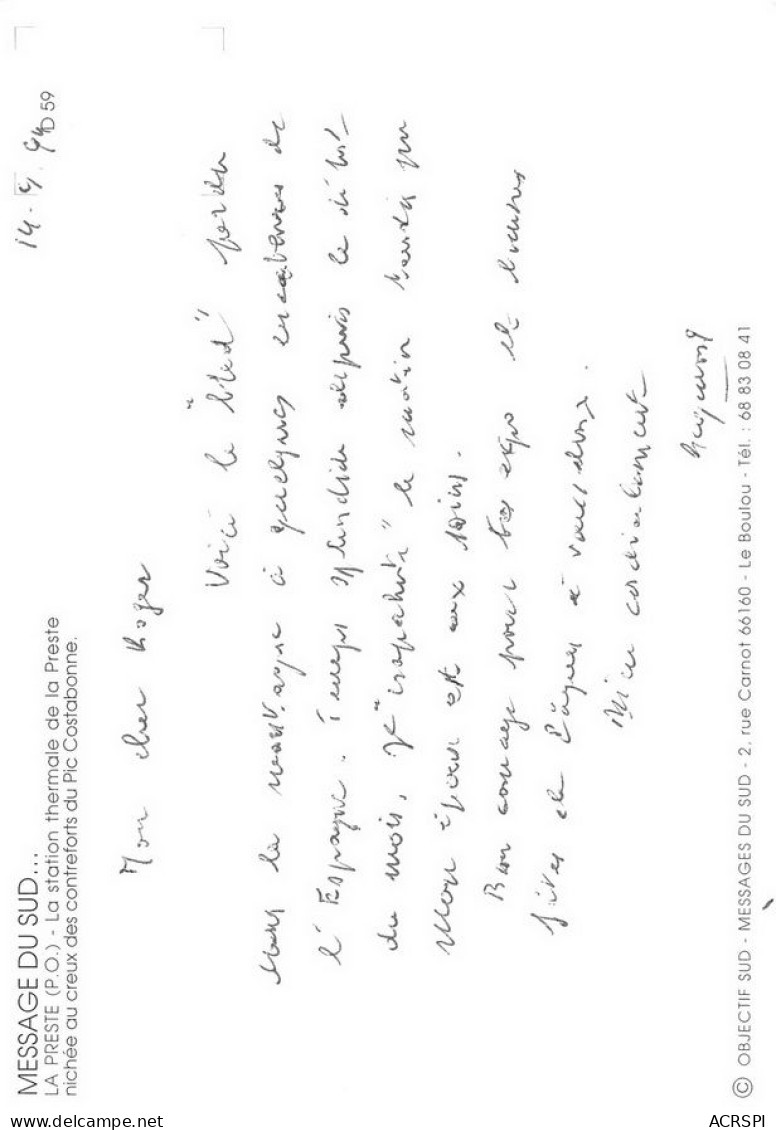 MESSAGE DU SUD...
LA PRESTE (P.O.) - La station thermale de la Preste
nichée au creux des contreforts du Pic Costabonne.
D 59
Mon cher Roger
Voici le "bled" perdu
dans la montagne à quelques encablures de
l'Espagne. Temps splendide depuis le début
du mois, je "crapahute" le matin tandis que
mon épouse est aux soins.
Bon courage pour tes expo et bonnes
fêtes de Pâques à vous deux.
Bien cordialement
© OBJECTIF SUD - MESSAGES DU SUD - 2, rue Carnot 66160 - Le Boulou - Tél. : 68 83 08 41
delcampe.net
ACRSPI